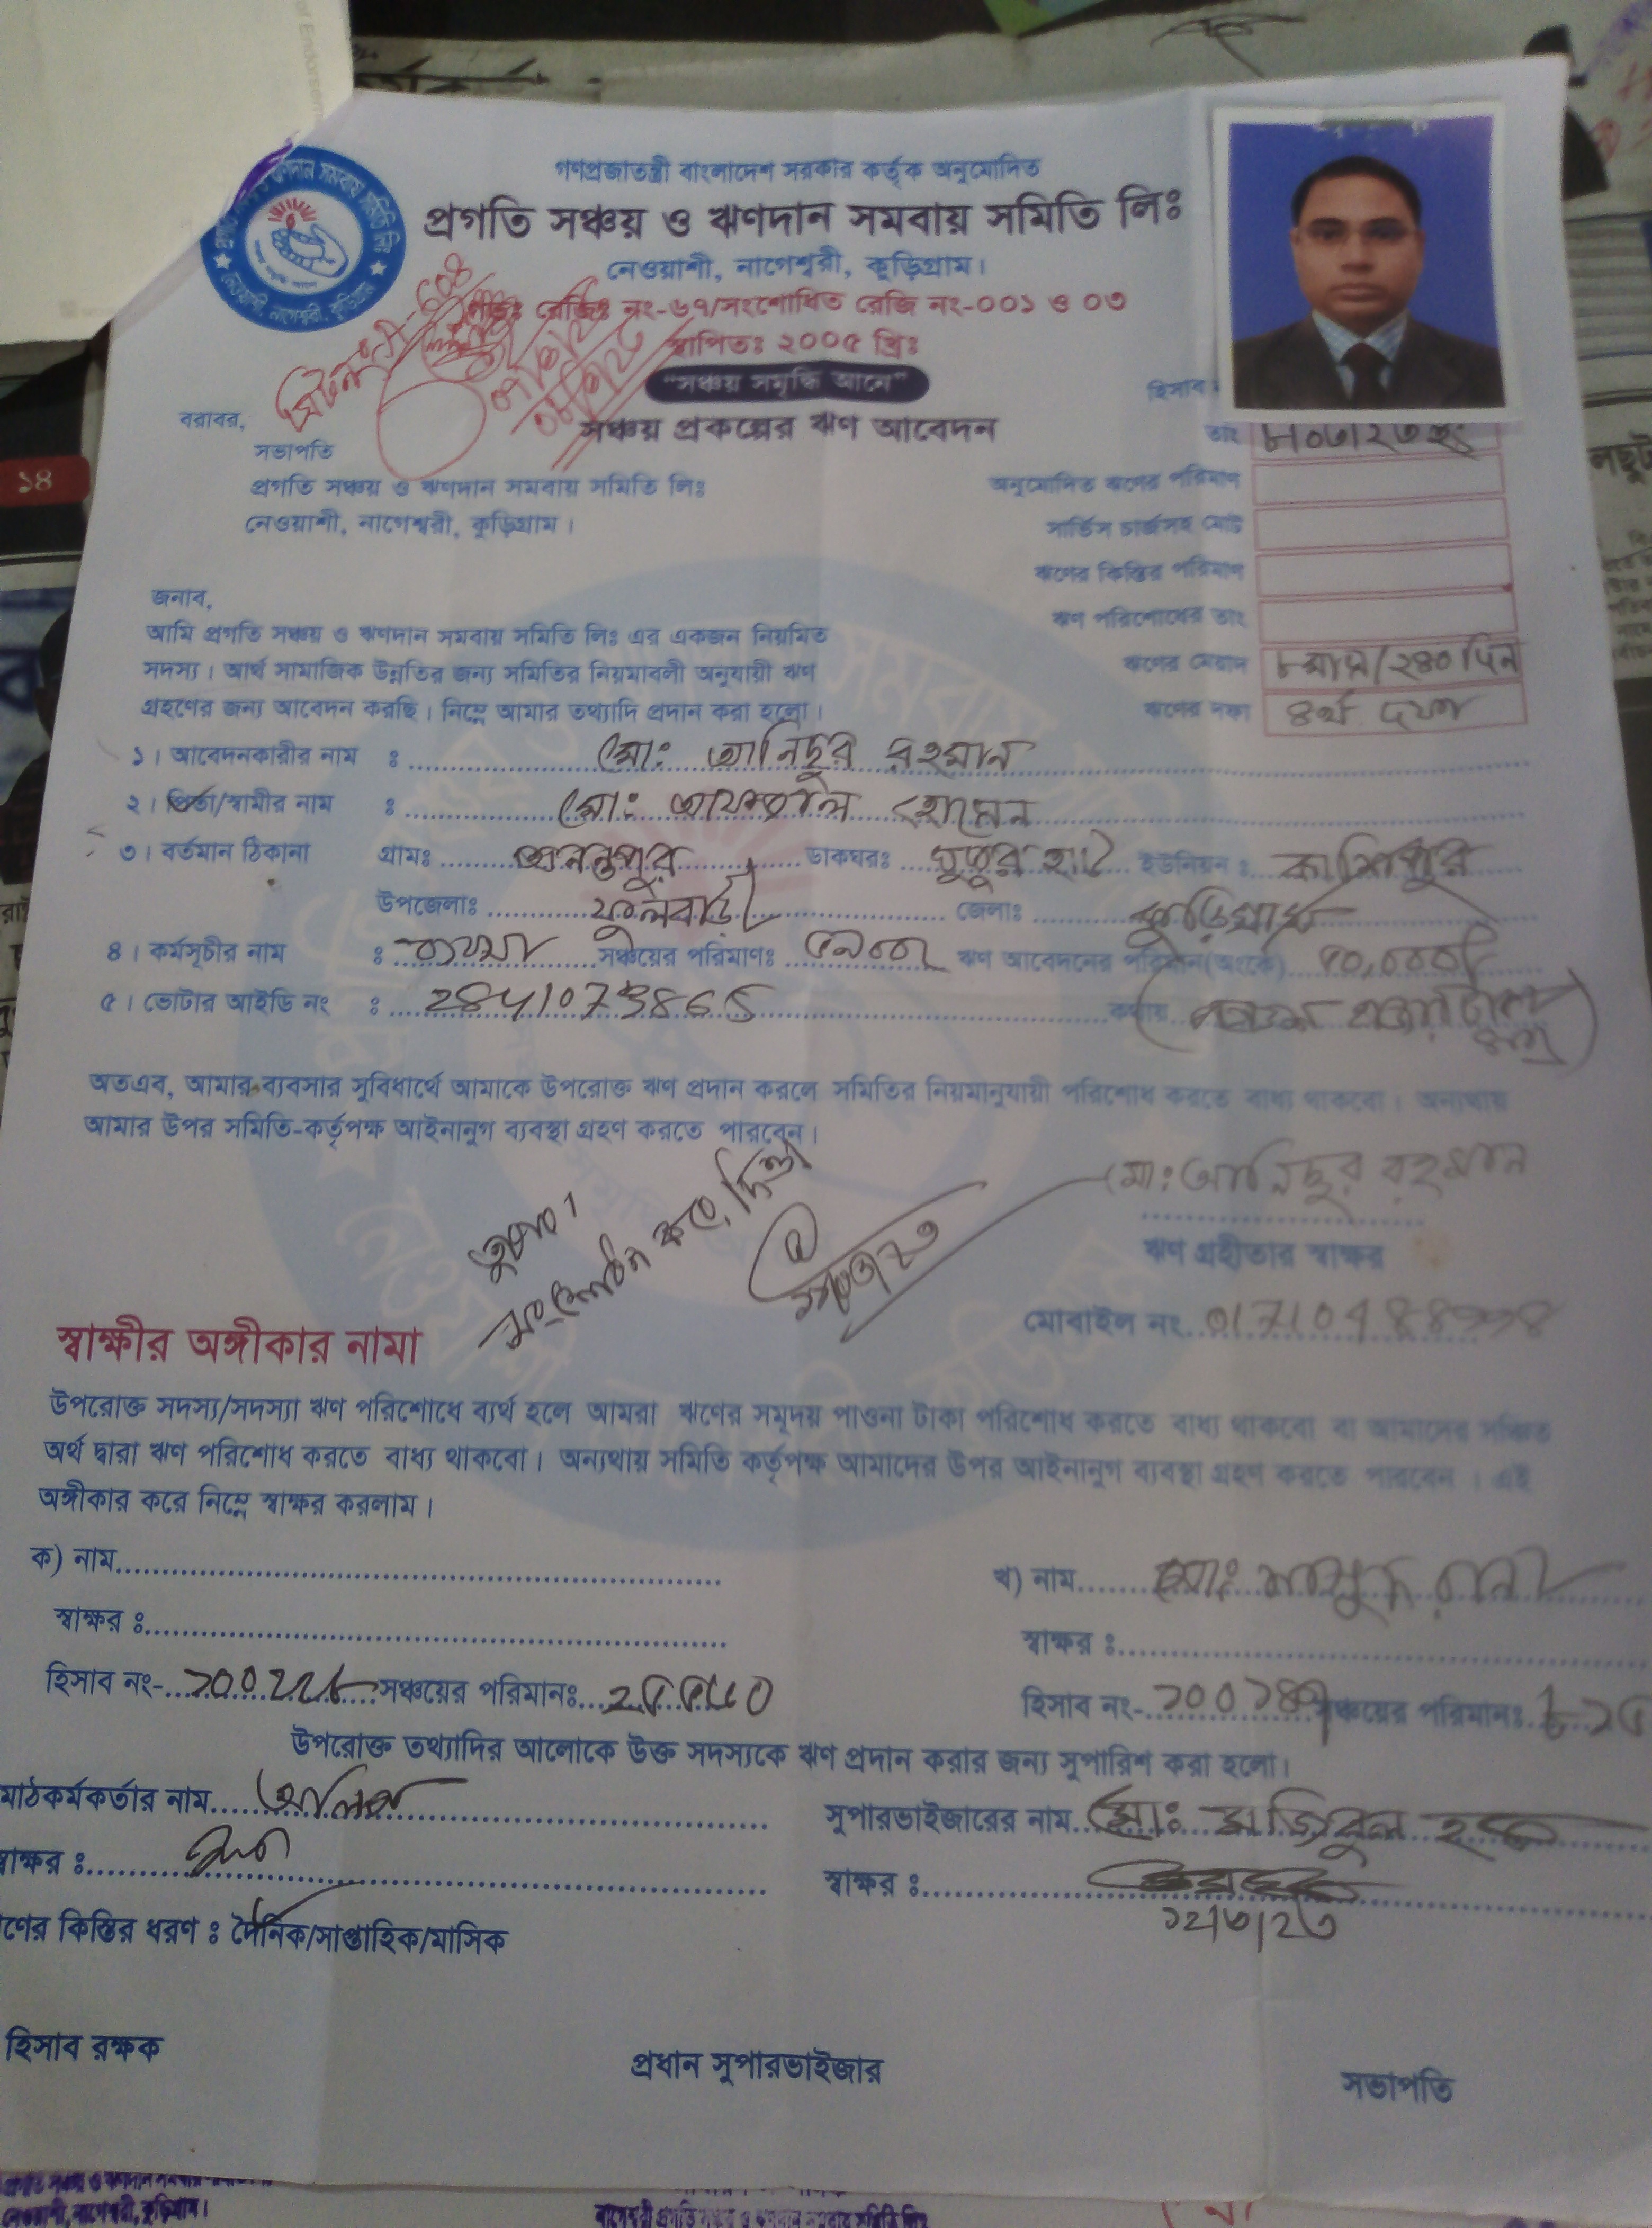 গণপ্রজাতন্ত্রী বাংলাদেশ সরকার কর্তৃক অনুমোদিত
প্রগতি সঞ্চয় ও ঋণদান সমবায় সমিতি লিঃ
নেওয়াশী, নাগেশ্বরী, কুড়িগ্রাম।
রেজিঃ নং-৬৭/সংশোধিত রেজি নং-০০১ ও ০৩
স্থাপিতঃ ২০০৫ খ্রিঃ
"সঞ্চয় সমৃদ্ধি আনে"
সঞ্চয় প্রকল্পের ঋণ আবেদন
হিসাব
তাং
অনুমোদিত ঋণের পরিমাণ
সার্ভিস চার্জসহ মোট
ঋণের কিস্তির পরিমাণ
ঋণ পরিশোধের তাং
ঋণের মেয়াদ ৮ মাস/২৪০ দিন
ঋণের দফা ৪র্থ দফা
বরাবর,
সভাপতি
প্রগতি সঞ্চয় ও ঋণদান সমবায় সমিতি লিঃ
নেওয়াশী, নাগেশ্বরী, কুড়িগ্রাম।
জনাব,
আমি প্রগতি সঞ্চয় ও ঋণদান সমবায় সমিতি লিঃ এর একজন নিয়মিত
সদস্য। আর্থ সামাজিক উন্নতির জন্য সমিতির নিয়মাবলী অনুযায়ী ঋণ
গ্রহণের জন্য আবেদন করছি। নিম্নে আমার তথ্যাদি প্রদান করা হলো।
১। আবেদনকারীর নাম : মোঃ আনিছুর রহমান
২। পিতা/স্বামীর নাম : মোঃ আফজাল হোসেন
৩। বর্তমান ঠিকানা গ্রামঃ অনন্তপুর ডাকঘরঃ হাট ইউনিয়ন : কাশিপুর
উপজেলাঃ ফুলবাড়ী জেলাঃ কুড়িগ্রাম
৪। কর্মসূচীর নাম : ব্যবসা সঞ্চয়ের পরিমাণঃ ঋণ আবেদনের পরিমান(অংকে) ৫০,০০০/
৫। ভোটার আইডি নং : কথায় পঞ্চাশ হাজার টাকা
অতএব, আমার ব্যবসার সুবিধার্থে আমাকে উপরোক্ত ঋণ প্রদান করলে সমিতির নিয়মানুযায়ী পরিশোধ করতে বাধ্য থাকবো। অন্যথায়
আমার উপর সমিতি-কর্তৃপক্ষ আইনানুগ ব্যবস্থা গ্রহণ করতে পারবেন।
মোঃ আনিছুর রহমান
ঋণ গ্রহীতার স্বাক্ষর
মোবাইল নং
স্বাক্ষীর অঙ্গীকার নামা
উপরোক্ত সদস্য/সদস্যা ঋণ পরিশোধে ব্যর্থ হলে আমরা ঋণের সমুদয় পাওনা টাকা পরিশোধ করতে বাধ্য থাকবো বা আমাদের সঞ্চিত
অর্থ দ্বারা ঋণ পরিশোধ করতে বাধ্য থাকবো। অন্যথায় সমিতি কর্তৃপক্ষ আমাদের উপর আইনানুগ ব্যবস্থা গ্রহণ করতে পারবেন। এই
অঙ্গীকার করে নিম্নে স্বাক্ষর করলাম।
ক) নাম
খ) নাম মোঃ মাসুদ রানা
স্বাক্ষর :
স্বাক্ষর :
হিসাব নং- সঞ্চয়ের পরিমানঃ
হিসাব নং- সঞ্চয়ের পরিমানঃ
উপরোক্ত তথ্যাদির আলোকে উক্ত সদস্যকে ঋণ প্রদান করার জন্য সুপারিশ করা হলো।
মাঠকর্মকর্তার নাম
সুপারভাইজারের নাম মোঃ হক
স্বাক্ষর :
স্বাক্ষর :
১২/৩/২৩
কিস্তির ধরণ : দৈনিক/সাপ্তাহিক/মাসিক
হিসাব রক্ষক
প্রধান সুপারভাইজার
সভাপতি